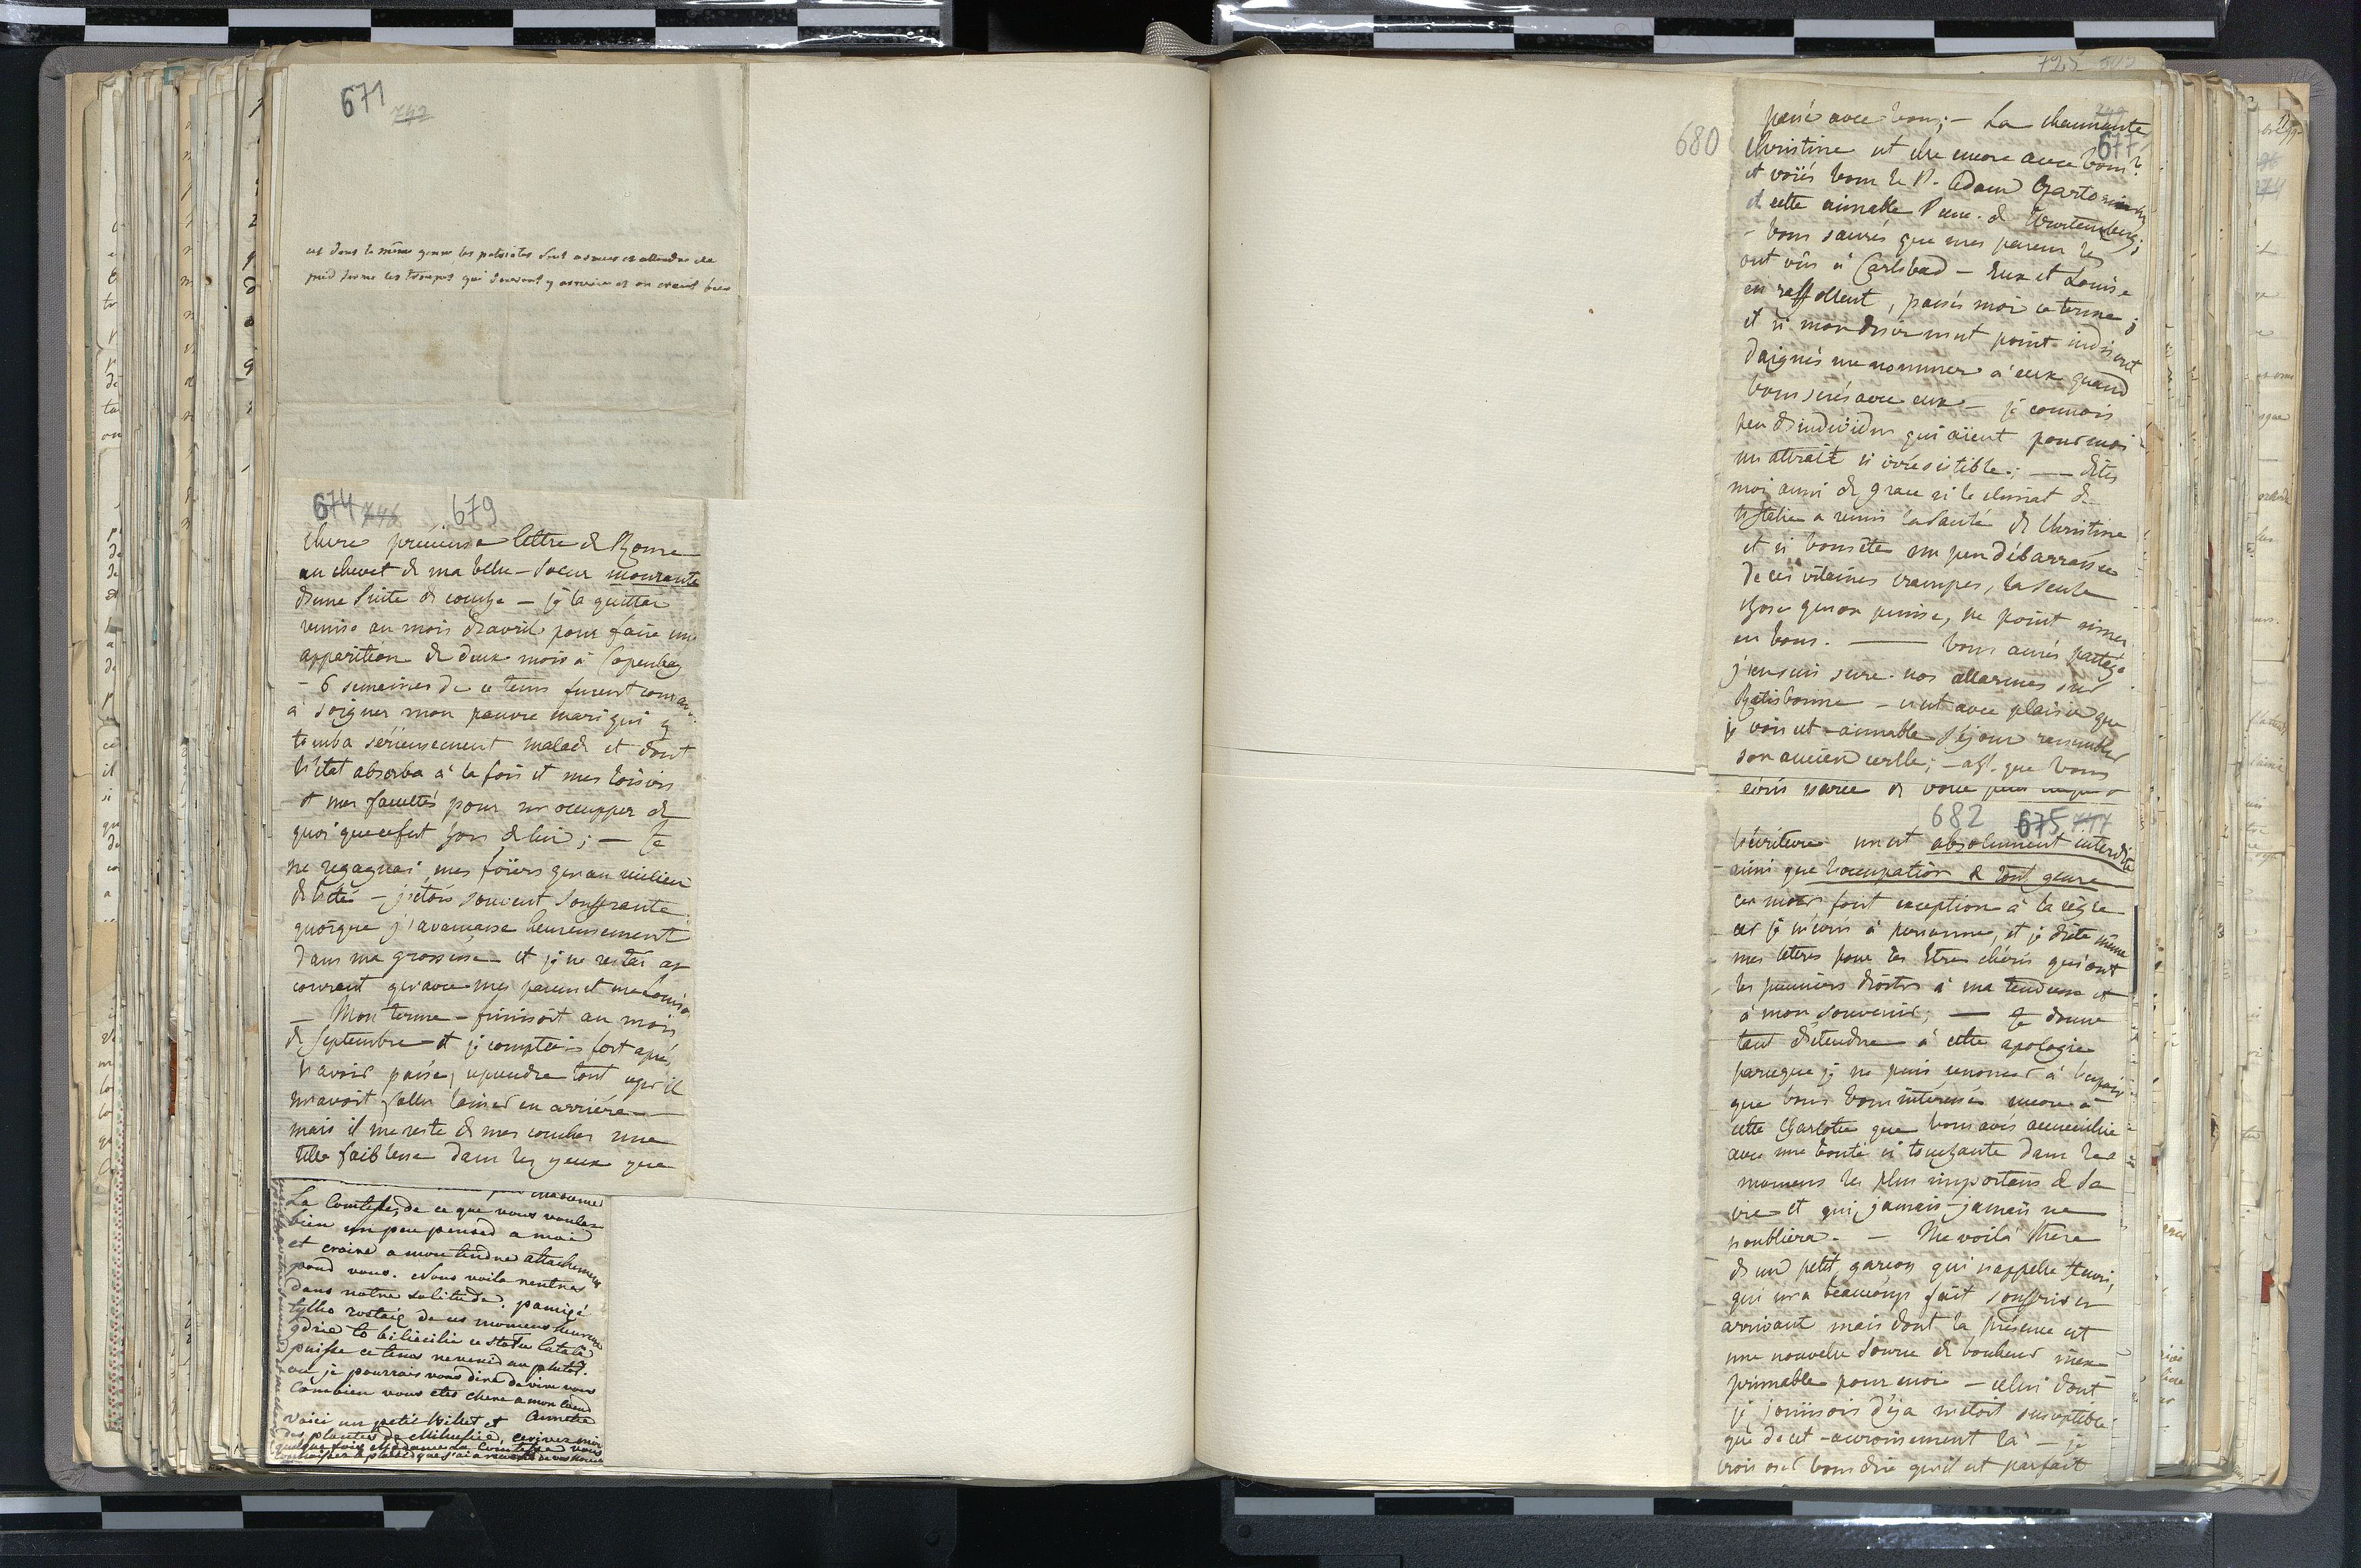 671 742
est dans le même genre, les patriotes sont armés et attendre de
pied ferme les troupes qui doivent y arriver et on craint bien
674 746 679
chere precieuse lettre de Rome
au chevet de ma belle-Soeur mourante
d'une Suite de couche – je la quittai
remise au mois d'avril pour faire une
apparition de deux mois à Copenhag
– 6 semaines de ce tems furent
à soigner mon pauvre mari qui y
tomba serieusement malade et dont
l'état absorba à la fois et mes loisirs
et mes facultés pour m'occupper de
quoi que ce fut hors de lui; – Je
ne regagnai mes foïers qu'au milieu
de l'été – j'etois souvent souffrante
quoique j'avançasse heureusement
dans ma grossesse – et je ne restai au
courant qu'avec mes parens et ma Louise
– Mon terme – finissoit au mois
de Septembre – et je comptois fort après
l'avoir passé, reprendre tout ce qu'il
m'avoit fallu laisser en arriére –
mais il me reste de mes couches une
telle faiblesse dans les yeux que
madame
La Comtesse, de ce que vous voulez
bien un peu penser a moi
et croire a mon tendre attachement
pour vous. Nous voila rentrés
dans notre solitude.
de ces momens heureux
puisse ce tems revenir au plutôt.
ou je pourrais vous dire de vive voix
Combien vous etes chere a mon coeur
Annette
Voici un petit billet et
des plantes de ecrivez moi
quelque fois Madame La Comtesse vous
connaissez le plaisir que j'ai a recevoir de vos nouvelles
725
749
680
677
passé avec vous; – La charmante
Christine est elle encore avec vous?
et voiés vous le P. Adam Czartorinsky
et cette aimable Pcesse. de Würtemberg;
– vous saurés que mes parens les
ont vûs à Carlsbad – Eux et Louise
en raffollent, passés moi ce terme;
et si mon desir n'est point indiscret
daignés me nommer à eux quand
vous serés avec eux – je connois
peu d'individus qui aïent pour moi
un attrait si irrésistible; — dites
moi aussi de grace si le climat de
l'Italie a remis la Santé de Christine
et si vous ête un peu débarrassée
de ces vilaines crampes, la seule
chose qu'on puisse, ne point aimer
en vous. — vous aurés partagé
j'en suis sure nos allarmes sur
Ratisbonne – c'est avec plaisir que
je vois cet – aimable Séjour ressembler
son ancien cercle; – que vous
682 675 747
l'écriture m'est absolument interdite
– ainsi que l'occupation de tout genre
ces mots font exception à la règle
car je n'écris à personne, et je dicte même
mes lettres pour les Etres chéris qui ont
les premiers droits à ma tendresse et
à mon souvenir; — Je donne
tant d'étendue à cette apologie
parceque je ne puis renoncer à l'espoir
que vous vous intéressés encore à
cette Charlotte que vous avés accueillie
avec une bonté si touchante dans les
momens les plus importans de sa
vie et qui, jamais – jamais ne
l'oubliera. – Me voilà Mère
d'un petit garçon qui s'appelle Henri,
qui m'a beaucoup fait souffrir en
arrivant mais dont la présence est
une nouvelle source de bonheur inex-
primable pour moi – celui dont
je jouissois déja n'etoit susceptible
que de cet – accroissement là – je
crois oser vous dire qu'il est parfait